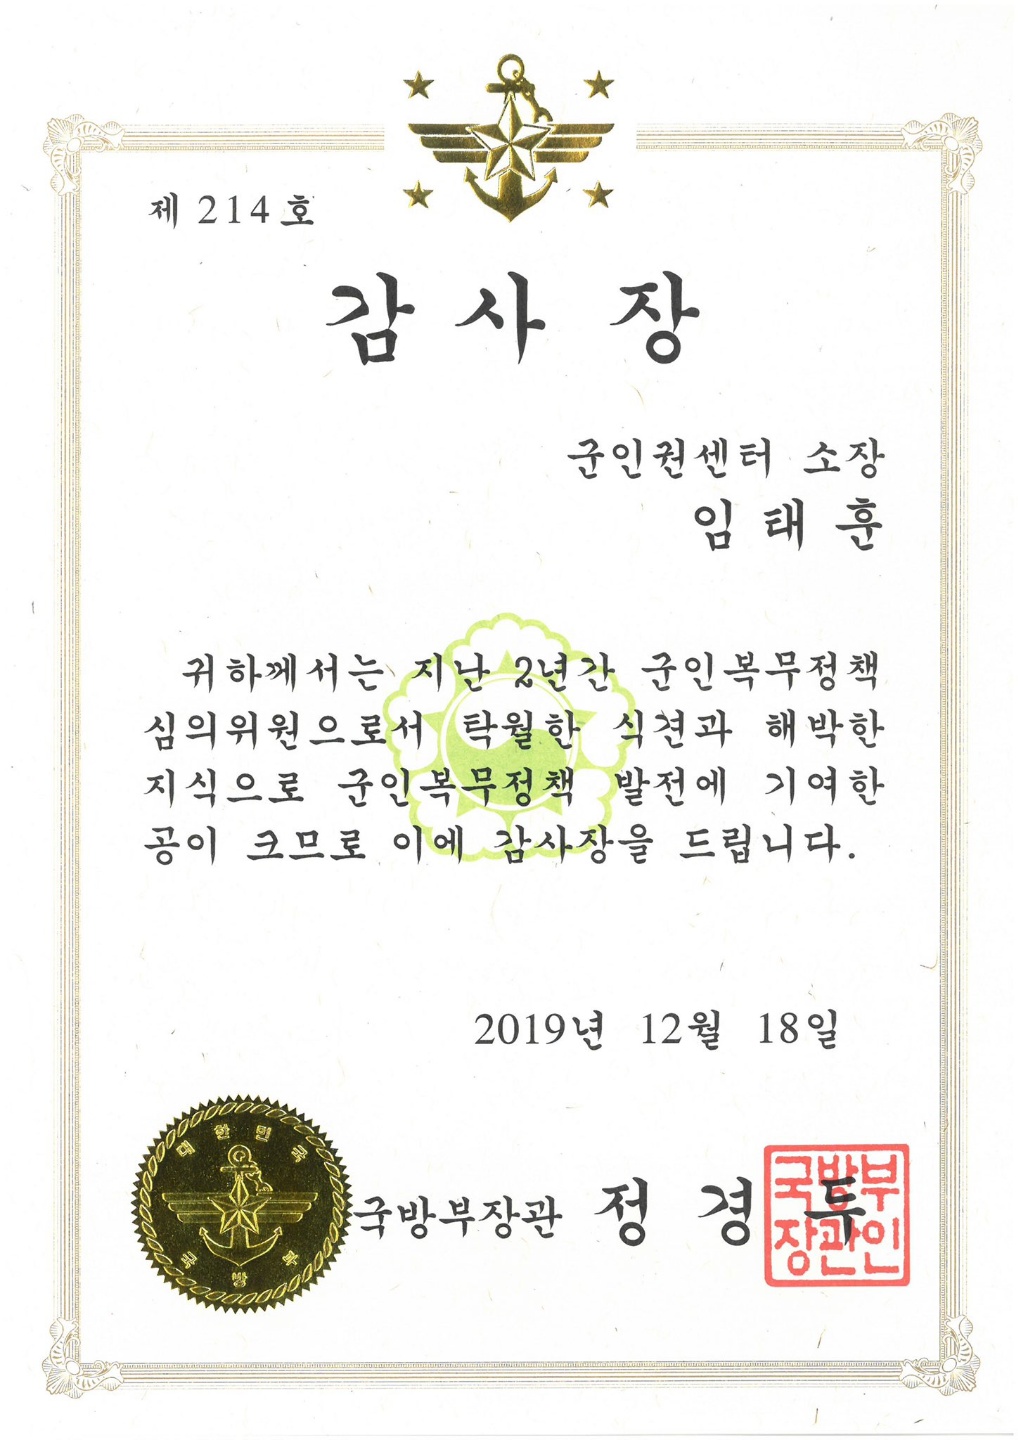 제 214 호
감 사 장
군인권센터 소장
임 태 훈
귀하께서는 지난 2년간 군인복무정책
심의위원으로서 탁월한 식견과 해박한
지식으로 군인복무정책 발전에 기여한
공이 크므로 이에 감사장을 드립니다.
2019년 12월 18일
대한민국
국방부
국방부장관 정 경 두
국방부
장관인